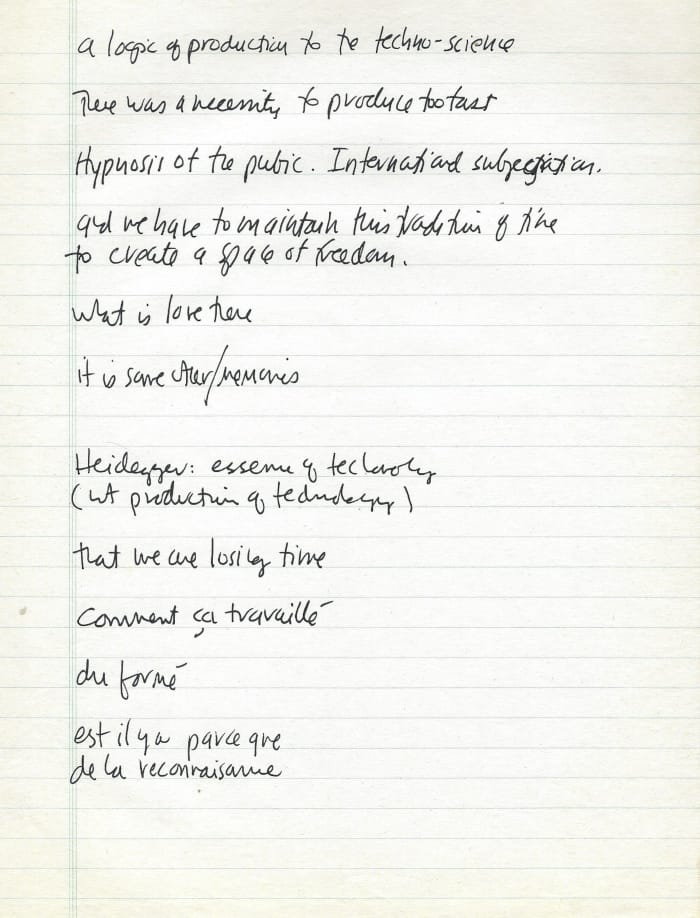 a logic of production to the techno-science
There was a necessity to produce too fast
Hypnosis of the public. International subjectiation.
and we have to maintain this tradition of time
to create a space of freedom.
What is love here
it is save /memories
Heidegger: essence of technology
(not production of technology)
that we are losing time
Comment ça travaillé
du formé
est il y a parce que
de la reconnaisanse